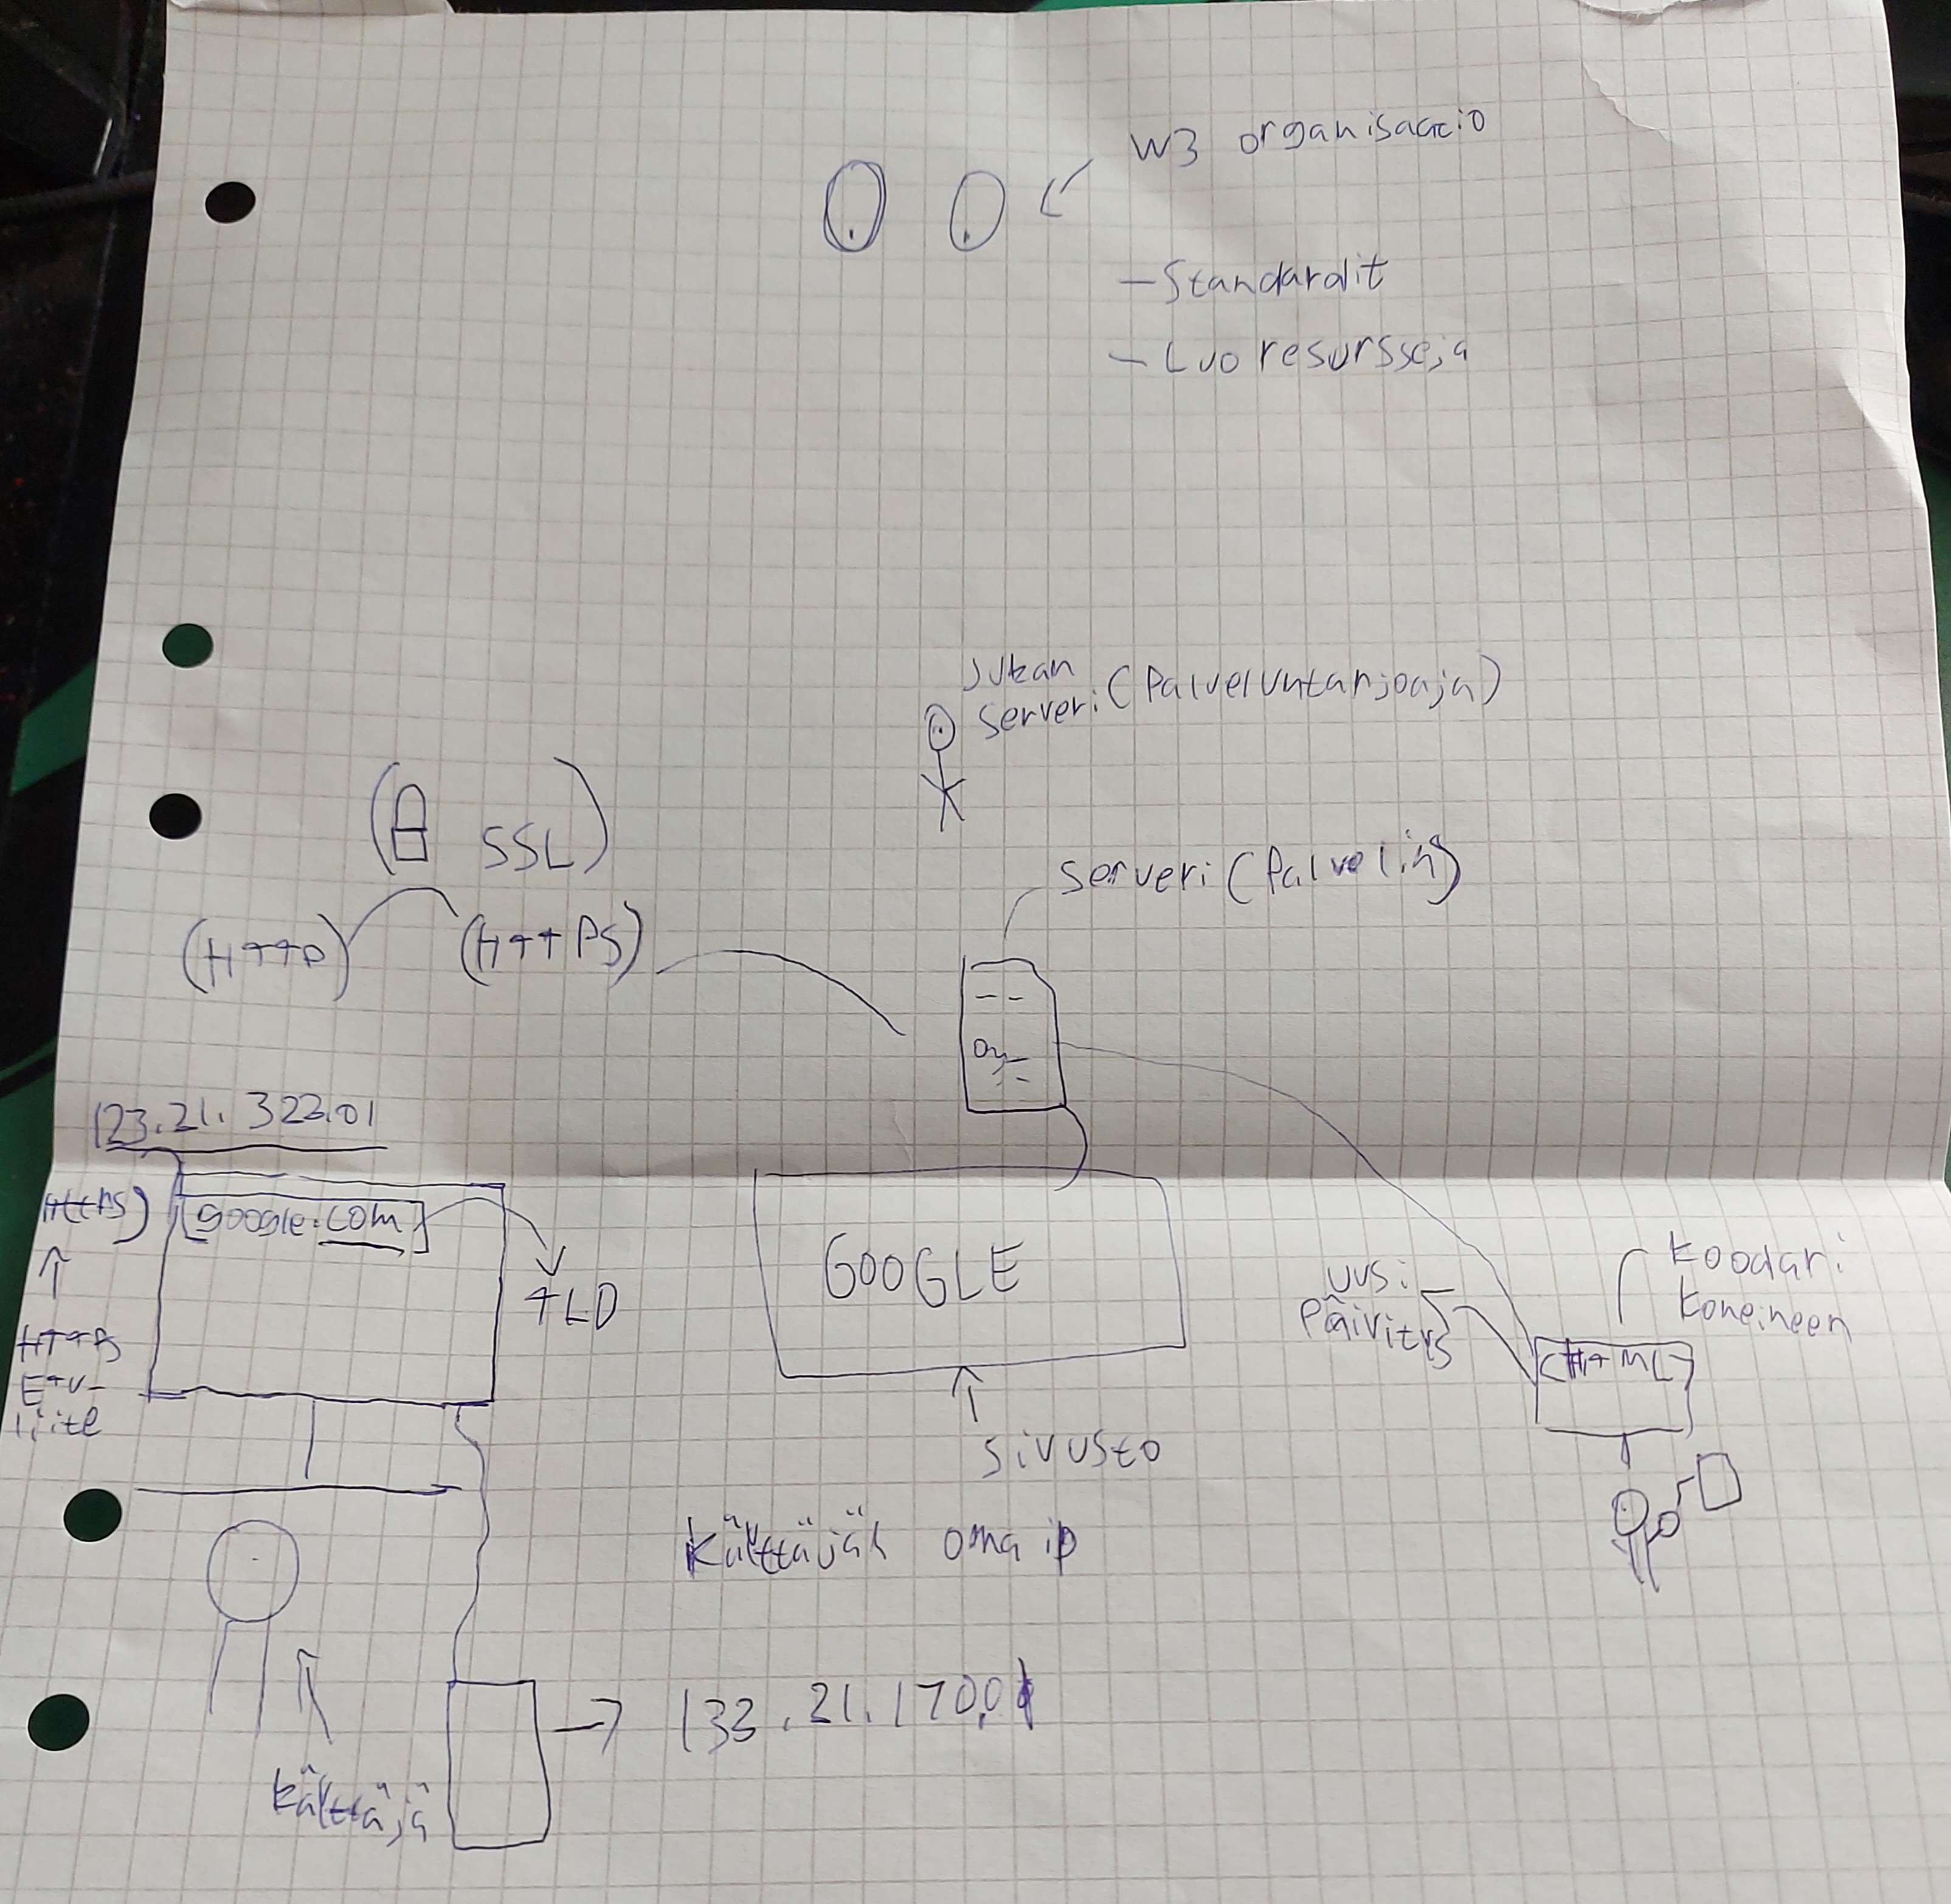 W3 organisaatio
- Standardit
- Luo resursseja
Jukan
Serveri (Palveluntarjoaja)
(SSL)
Serveri (Palvelin)
(HTTP)
(HTTPS)
123.21.322.01
https)
[google.com]
TLD
HTTPS
Etu-
liite
GOOGLE
Sivusto
uusi
Päivitys
Koodari
Koneineen
<HTML>
Kälttäjän oma ip
133.21.170.01
Kälttäjä